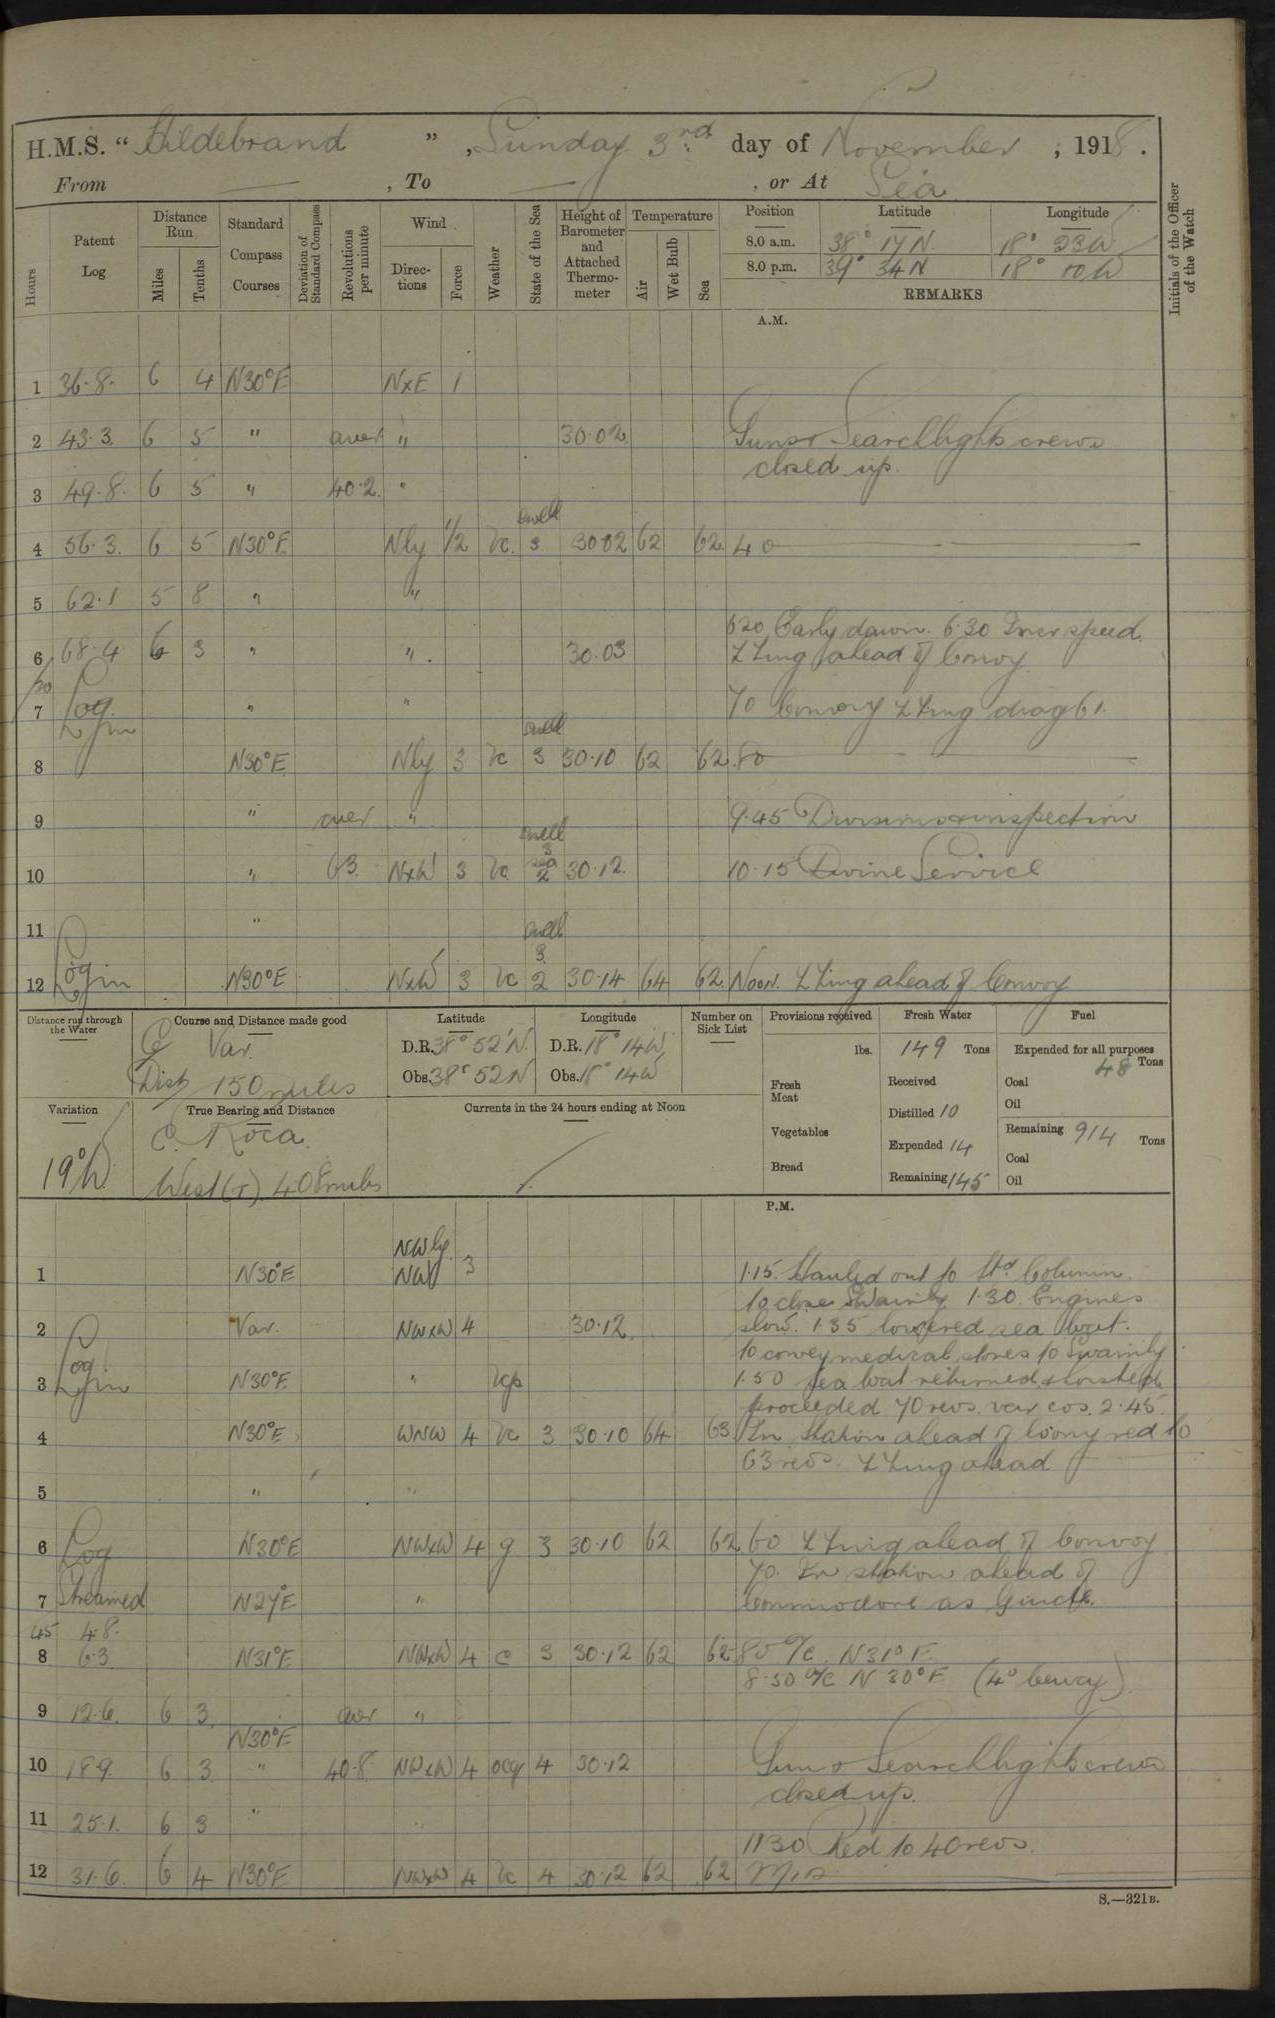 H.M.S. "Hildebrand", Sunday 3rd day of November, 1918.
From — , To — , or At Sea
Hours
Patent Log
Distance Run
Miles
Tenths
Standard Compass Courses
Deviation of Standard Compass
Revolutions per minute
Wind
Directions
Force
Weather
State of the Sea
Height of Barometer and Attached Thermometer
Temperature
Air
Wet Bulb
Sea
Position Latitude Longitude
8.0 a.m. 38° 17 N 18° 23 W
8.0 p.m. 39° 34 N 18° 10 W
REMARKS
Initials of the Officer of the Watch
A.M.
1 36.8 6 4 N30°E NxE 1
2 43.3 6 5 " aver " 30.02 Guns & Searchlights crews
closed up.
3 49.8 6 5 " 40.2 "
swell
4 56.3 6 5 N30°E Nly 1/2 bc 3 30.02 62 62 4 0
5 62.1 5 8 " "
6 20 Early dawn. 6.30 Incr speed.
6 68.4 6 3 " " 30.03 ZZing ahead of Convoy
7 Log " " 70 Convoy ZZing diag 61
In swell
8 N30°E Nly 3 bc 3 30.10 62 62 80
9 " aver " 9.45 Divisions & inspection
swell 3
10 " 63 NxW 3 bc sea 2 30.12 10.15 Divine Service
11 "
swell 3
12 Log in N30°E NxW 3 bc 2 30.14 64 62 Noon. ZZing ahead of Convoy
Distance run through the Water
Course and Distance made good
Var.
Dist 150 miles
Latitude
D.R. 38° 52' N
Obs. 38° 52 N
Longitude
D.R. 18° 14 W
Obs. 18° 14 W
Number on Sick List
Provisions received
lbs.
Fresh Meat
Vegetables
Bread
Fresh Water
149 Tons
Received
Distilled 10
Expended 14
Remaining 145
Fuel
Expended for all purposes
48 Tons
Coal
Oil
Remaining 914 Tons
Coal
Oil
Variation
19° W
True Bearing and Distance
C. Roca.
West (T). 408 miles
Currents in the 24 hours ending at Noon
P.M.
NWly
1 N30°E NW 3 1.15. Hauled out fo Std Column.
to close Swainby 1.30. Engines
2 Var. NWxW 4 30.12 slow. 1.35 lowered sea boat.
to convey medical stores to Swainby
3 Log In N30°E " bcp 1.50 sea boat returned & hoisted
proceeded 70 revs. var cos. 2.45.
4 N30°E WNW 4 bc 3 30.10 64 63 In station ahead of Convoy red to
63 revs. ZZing ahead
5 " "
6 Log N30°E NWxW 4 g 3 30.10 62 62 60 ZZing ahead of Convoy
70. In station ahead of
7 Streamed N27°E " Commodore as Guide.
45 48.
8 6.3 N31°E NWxW 4 c 3 30.12 62 62 80 a/c N31°E
8.50 a/c N 30°E (4° Convoy)
9 12.6 6 3 aver "
N30°E
10 18.9 6 3 " 40.8 NWxW 4 ocq 4 30.12 Guns & Searchlights crews
closed up.
11 25.1 6 3 "
1130 Red to 40 revs.
12 31.6 6 4 N30°E NWxW 4 bc 4 30.12 62 62 Midt
S.—321B.